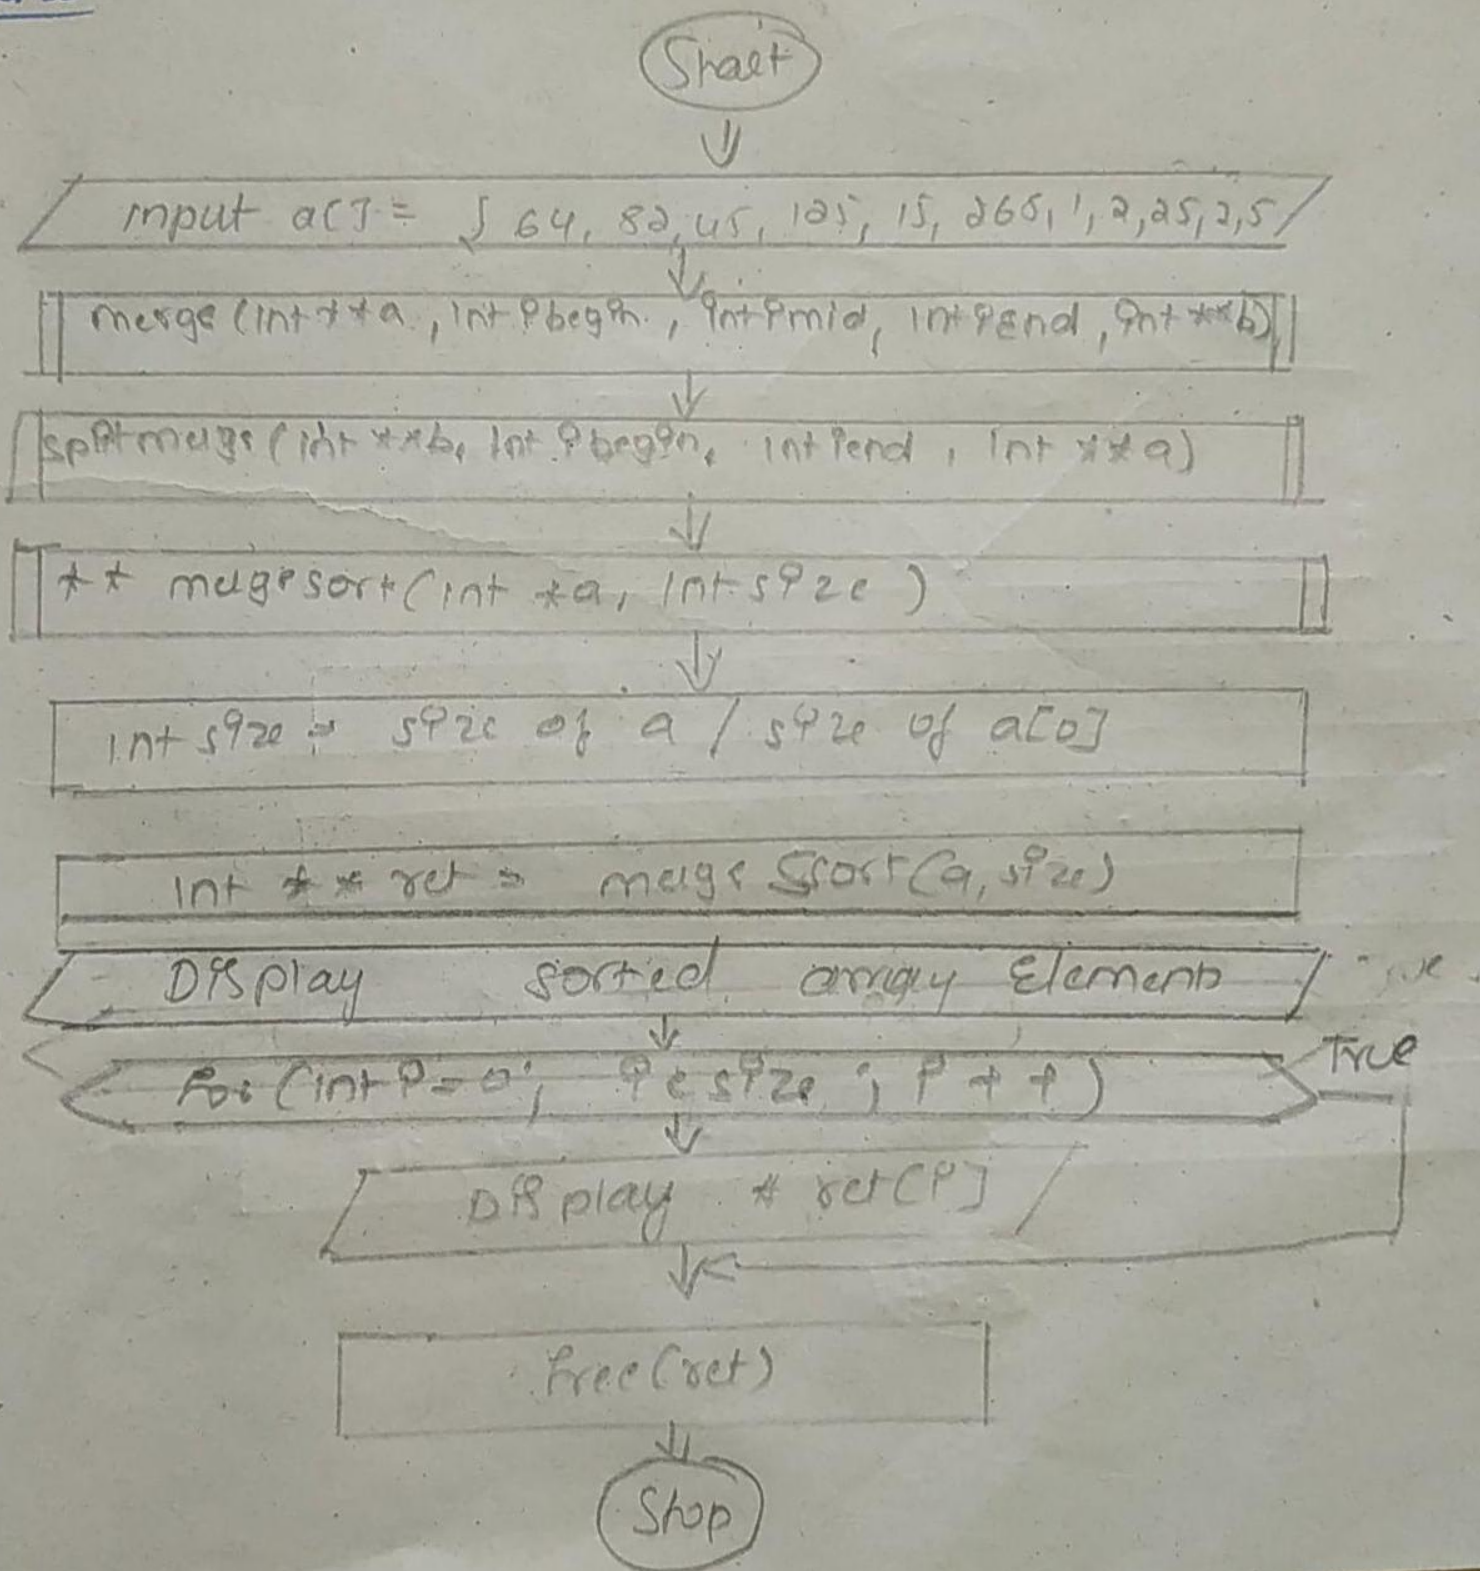 Start
input a[] = { 64, 82, 45, 125, 15, 265, 1, 2, 25, 2, 5
merge (int **a, int ibegin, int imid, int iend, int **b)
splitmerge (int **b, int ibegin, int iend, int **a)
** mergesort (int *a, int size)
int size = size of a / size of a[0]
int ** ret = merge Ssort (a, size)
Display sorted array Elements
True
for (int i = 0; i < size; i ++)
Display * ret[i]
free (ret)
Stop